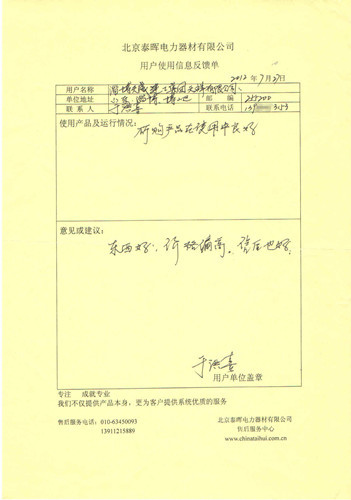 北京泰晖电力器材有限公司
用户使用信息反馈单
2012年7月27日
用户名称 有限公司
单位地址 山东 淄博 博山 邮编 255200
联系人 于洪喜 联系电话 3153
使用产品及运行情况:
所购产品在使用中良好
意见或建议:
东西好,价格偏高。售后也好.
于洪喜
用户单位盖章
专注 成就专业
我们不仅提供产品本身,更为客户提供系统优质的服务
售后服务电话:010-63450093
13911215889
北京泰晖电力器材有限公司
售后服务中心
www.chinataihui.com.cn